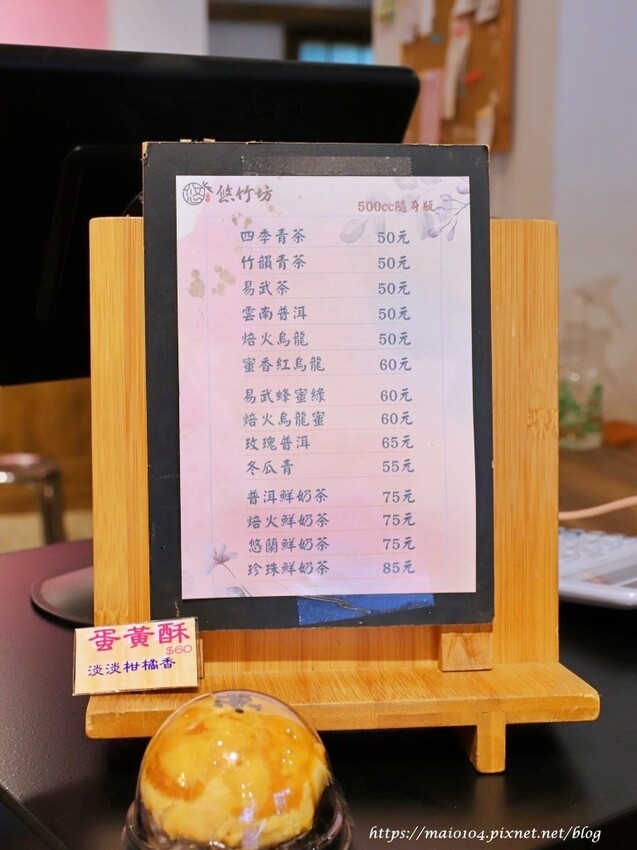 悠竹坊
500cc隨身版
四季青茶 50元
竹韻青茶 50元
易武茶 50元
雲南普洱 50元
焙火烏龍 50元
蜜香紅烏龍 60元
易武蜂蜜綠 60元
焙火烏龍蜜 60元
玫瑰普洱 65元
冬瓜青 55元
普洱鮮奶茶 75元
焙火鮮奶茶 75元
悠蘭鮮奶茶 75元
珍珠鮮奶茶 85元
蛋黃酥
$60
淡淡柑橘香
https://maio104.pixnet.net/blog